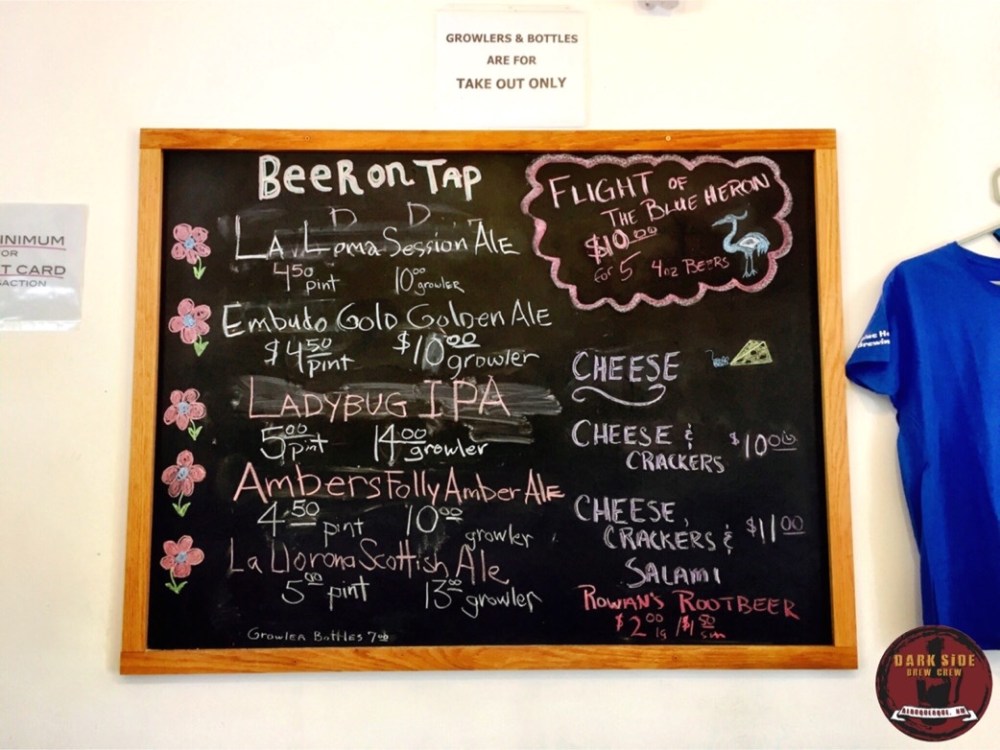 GROWLERS & BOTTLES
ARE FOR
TAKE OUT ONLY
INIMUM
OR
T CARD
ACTION
BEER ON TAP
LA Loma Session ALE
4.50 pint 10.00 growler
Embudo Gold Golden Ale
$4.50 pint $10.00 growler
LADYBUG IPA
5.00 pint 14.00 growler
Ambers Folly Amber Ale
4.50 pint 10.00 growler
La Llorona Scottish Ale
5.00 pint 13.00 growler
Growler Bottles 7.00
FLIGHT OF
THE BLUE HERON
$10.00
for 5 4oz BEERS
CHEESE
CHEESE & $10.00
CRACKERS
CHEESE,
CRACKERS & $11.00
SALAMI
ROWAN'S ROOTBEER
$2.00 lg /$1.50 sm
DARK SiDE
BREW CREW
ALBUQUERQUE, NM